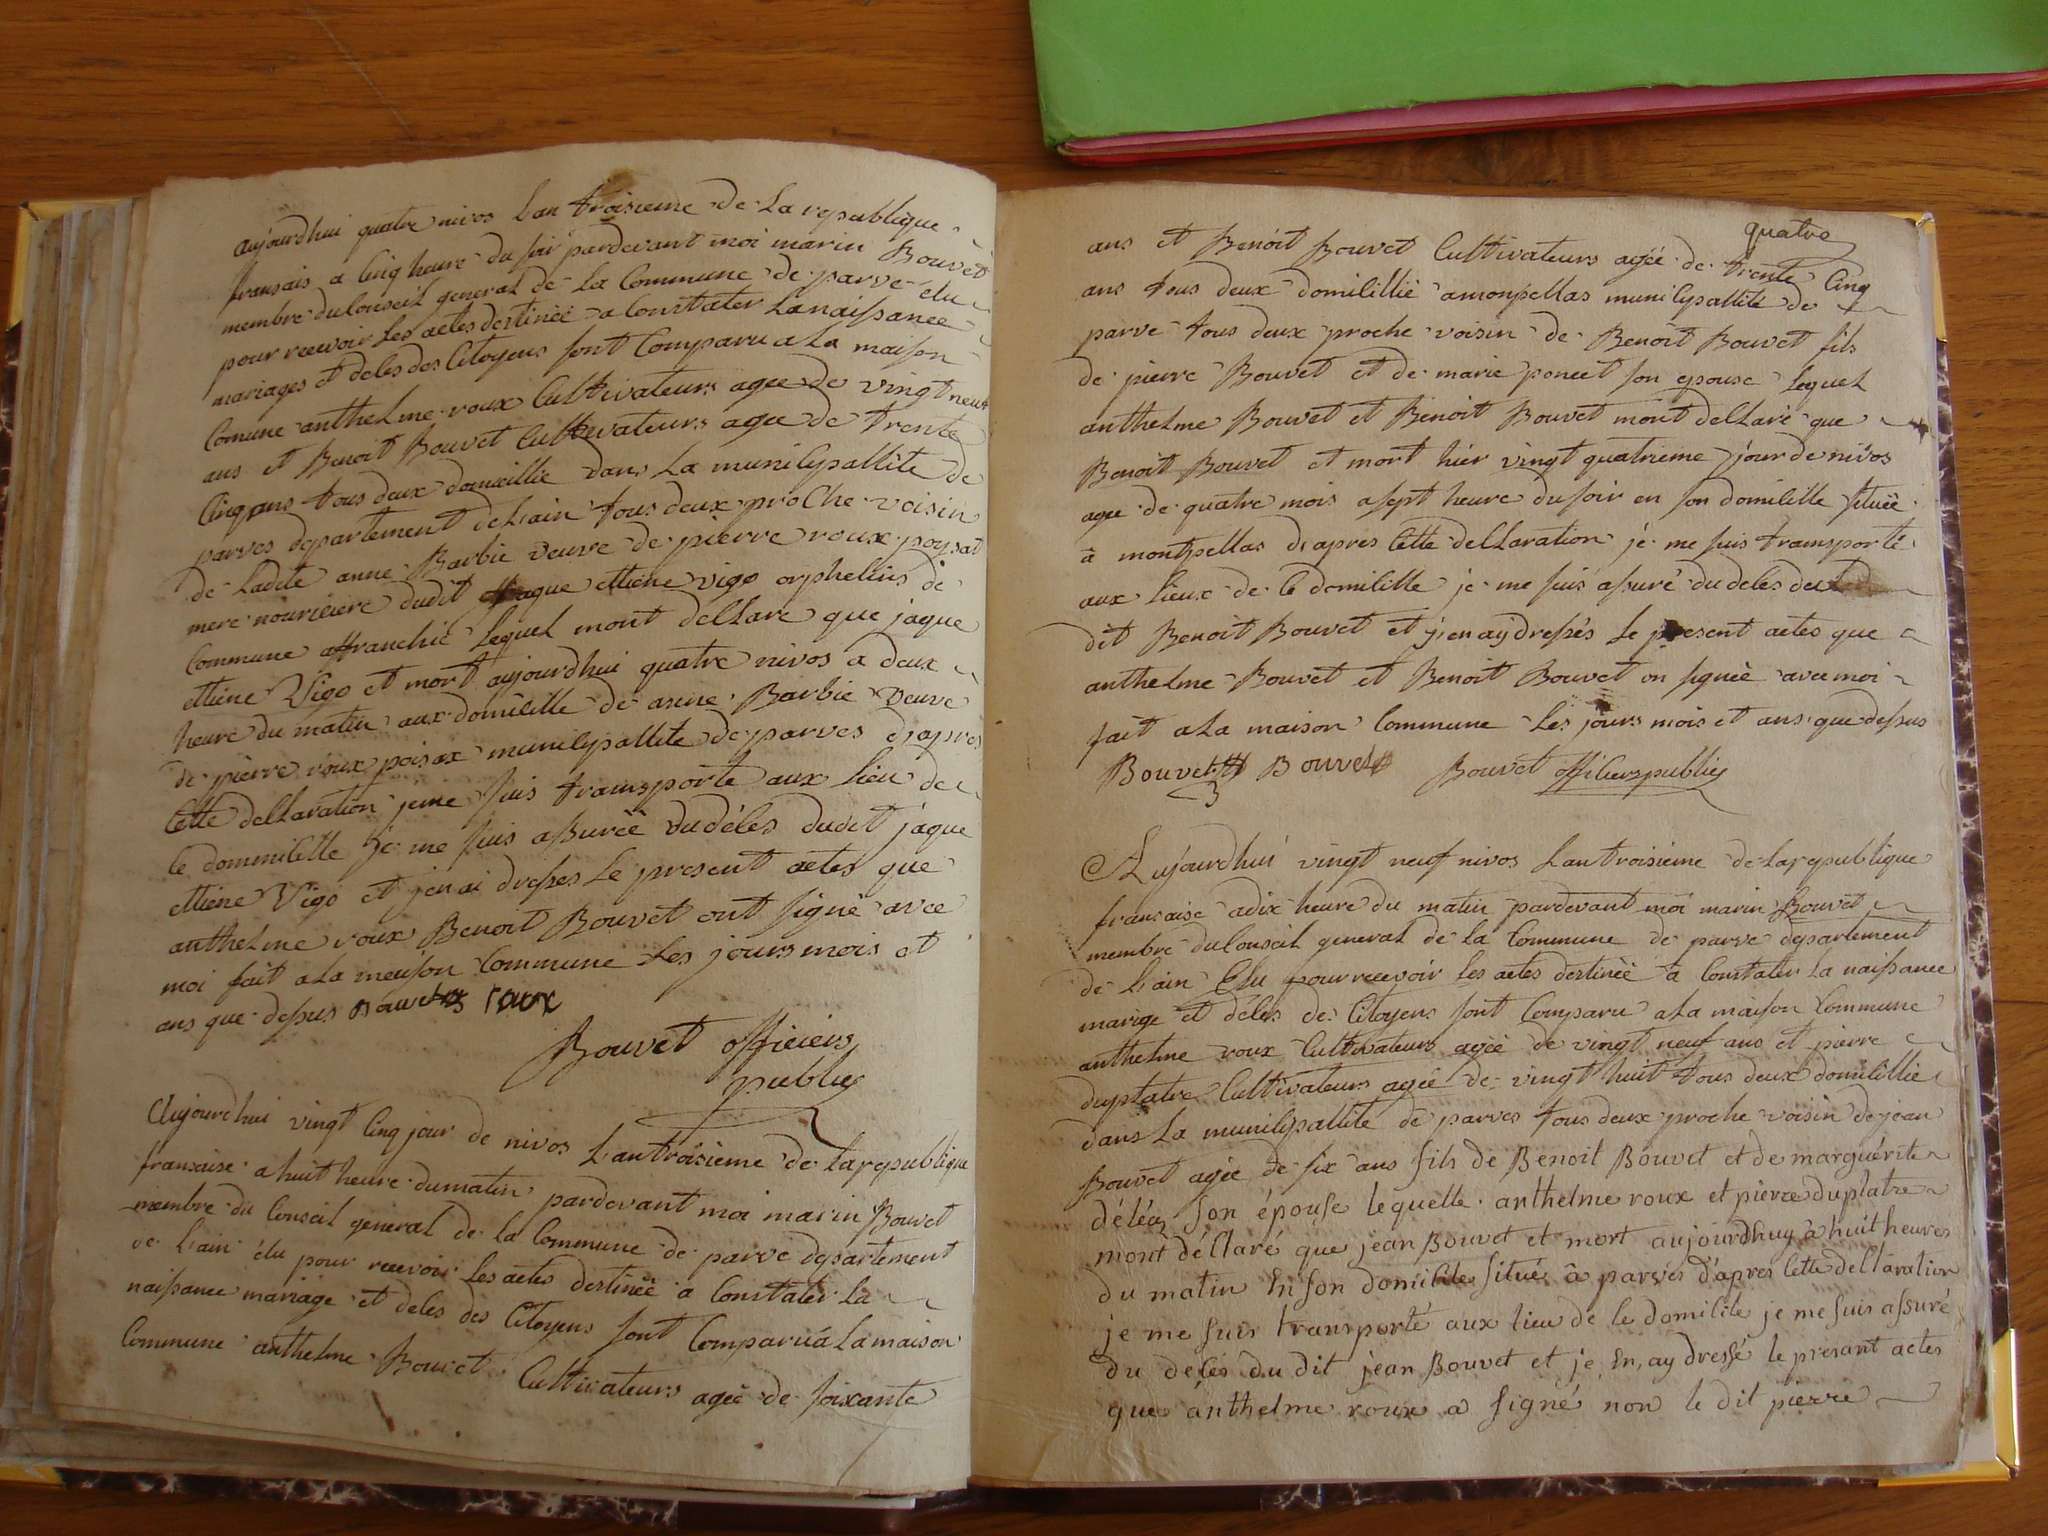 aujourdhui quatre nivos Lan troisieme de La republique
fransais a Cinq heure du soir pardevant moi marin Bouvet
membre du Conseil general de La Commune de parve elu
pour recevoir Les actes destinéé a Constater La naissance
mariages et deles des Citoyens sont Comparu a La maison
Comune anthelme roux Cultivateurs agee de vingt neuf
ans et Benoit Bouvet Cultivateurs agee de trente
Cinq ans tous deux domicillie dans La municipallite de
parves departement de Lain tous deux proche voisin
de Ladite anne Barbie veuve de pierre roux poysat
mere nouriciere dudit jaque ettiene vigo orphelins de
Commune affranchie Lequel mont decLare que jaque
ettiene Vigo et mort aujourdhui quatre nivos a deux
heure du matin aux domicille de anne Barbie veuve
de pierre roux poisax municipallite de parves d'apres
Cette decLaration je me suis transporte aux Lieu de
Ce dommicille je me suis assuréé du déles dudit jaque
ettiene Vigo et jen ai dresses Le present actes que
anthelme roux Benoit Bouvet ont signé avec
moi fait a La meuson Commune Les jours mois et
ans que dessus Bouvet roux
Bouvet officiers
publies
Aujourdhui vingt Cinq jour de nivos Lan troisieme de La republique
francaise a huit heure du matin pardevant moi marin Bouvet
membre du Conseil general de la Commune de parve departement
de Lain élu pour recevoir Les actes destinéé a Constater La
naissance mariage et deles des Citoyens sont Comparu a La maison
Commune anthelme Bouvet Cultivateurs agéé de soixante
quatre
ans et Benoit Bouvet Cultivateurs agéé de trente Cinq
ans tous deux domicillié a montpellas municipallité de
parve tous deux proche voisin de Benoit Bouvet fils
de pierre Bouvet et de marie poncet son epouse Lequel
anthelme Bouvet et Benoit Bouvet mont decLaré que
Benoit Bouvet et mort hier vingt quatrieme jour de nivos
age de quatre mois a sept heure du soir en son domicille situéé
à montpellas d'apres Cette decLaration je me suis transporté
aux Lieux de Ce domicille je me suis assuré du deles du
dit Benoit Bouvet et j'en ay dressés Le present actes que
anthelme Bouvet et Benoit Bouvet on signéé avec moi
fait a La maison Commune Les jours mois et ans que dessus
Bouvet Bouvet Bouvet officiers publies
Aujourdhui vingt neuf nivos Lan troisieme de La republique
francaise a dix heure du matin pardevant moi marin Bouvet
membre du Conseil general de la Commune de parve departement
de Lain Elu pour recevoir Les actes destinéé a Constater La naissance
marige et déles des Citoyens sont Comparu a La maison Commune
anthelme roux Cultivateurs agéé de vingt neuf ans et pierre
duplatre Cultivateurs agéé de vingt huit tous deux domicillie
dans La municipallité de parves tous deux proche voisin de jean
Bouvet agéé de six ans fils de Benoit Bouvet et de marguérite
déléas son épouse lequelle anthelme roux et pierre duplatre
mont décLaré que jean Bouvet et mort aujourdhuy à huit heures
du matin en son domicile situés à parves d'apres Cette decLaration
je me suis transporté aux lieu de le domicile je me suis assuré
du deces du dit jean Bouvet et je en ay dressé le presant actes
que anthelme roux a signé non le dit pierre